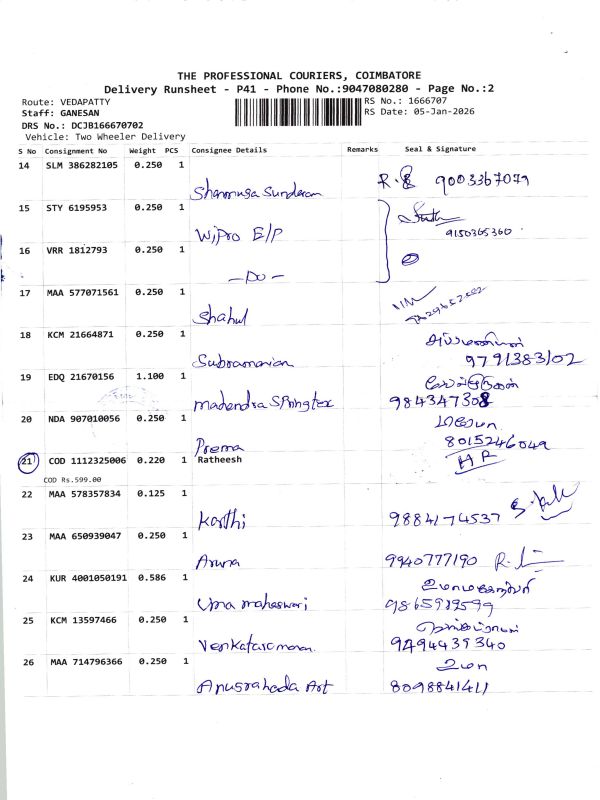 THE PROFESSIONAL COURIERS, COIMBATORE
Delivery Runsheet - P41 - Phone No.:9047080280 - Page No.:2
Route: VEDAPATTY
Staff: GANESAN
DRS No.: DCJB166670702
Vehicle: Two Wheeler Delivery
RS No.: 1666707
RS Date: 05-Jan-2026
S No Consignment No Weight PCS Consignee Details Remarks Seal & Signature
14 SLM 386282105 0.250 1
Shanmuga Sundaram 9003367079
15 STY 6195953 0.250 1
Wipro E/P 9150365360
16 VRR 1812793 0.250 1
- Do -
17 MAA 577071561 0.250 1
Shahul
18 KCM 21664871 0.250 1
Subramanian 9791383102
19 EDQ 21670156 1.100 1
Mahendra Springtex 984347308
20 NDA 907010056 0.250 1
Prema 8015246049
21 COD 1112325006 0.220 1 Ratheesh
COD Rs.599.00
22 MAA 578357834 0.125 1
Karthi 9884174537
23 MAA 650939047 0.250 1
Aruna 9940777190
24 KUR 4001050191 0.586 1
Uma maheswari
25 KCM 13597466 0.250 1
Venkataraman 9494439340
26 MAA 714796366 0.250 1
உமா
Anusrahada Art 8098841411